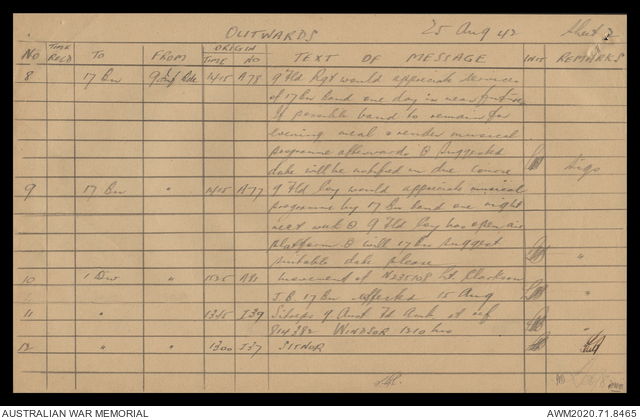 OUTWARDS 25 Aug 42 Sheet 2
NO TIME RECD TO FROM ORIGIN TIME NO TEXT OF MESSAGE INIT REMARKS
8 17 Bn 9 Inf Bde 1415 A78 9 Fld Rgt would appreciate services
of 17 Bn band one day in near future
If possible band to remain for
evening meal & render musical
programme afterwards Suggested
date will be notified in due course Sigs
9 17 Bn " 1415 A77 9 Fld Coy would appreciate musical
programme by 17 Bn band one night
next wk 9 Fld Coy has open air
platform will 17 Bn suggest
suitable date please "
10 1 Div " 1535 A81 Movement of Lt Clarkson
J.B. 17 Bn effected 15 Aug "
11 " " 1345 I39 Sitreps 9 Aust Fd Amb at ref
814382 WINDSOR 1210 hrs "
12 " " 1300 I37 SITNOR
AUSTRALIAN WAR MEMORIAL AWM2020.71.8465